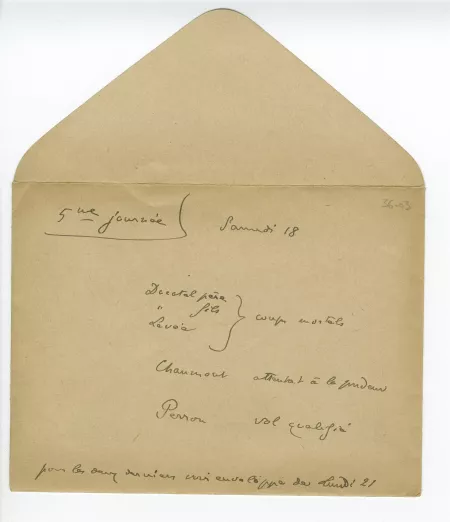 5me journée Samedi 18
36-03
Ductal père
" fils } coups mortels
Levée
Chaumont attentat à la pudeur
Perron vol qualifié
pour les deux derniers voir enveloppe du Lundi 21